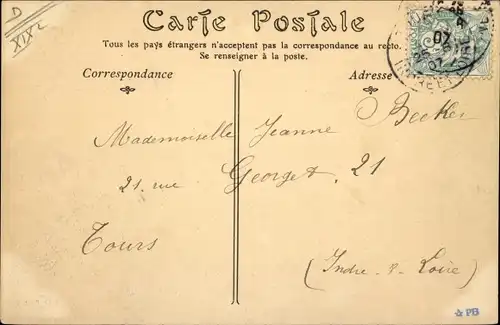 D
XIXc
Carte Postale
Tous les pays étrangers n'acceptent pas la correspondance au recto.
Se renseigner à la poste.
Correspondance
Adresse
Mademoiselle Jeanne Becker
21. rue Georget. 21
Tours
(Indre-&-Loire)
07
25
07
INDRE-ET-LOIRE
PB